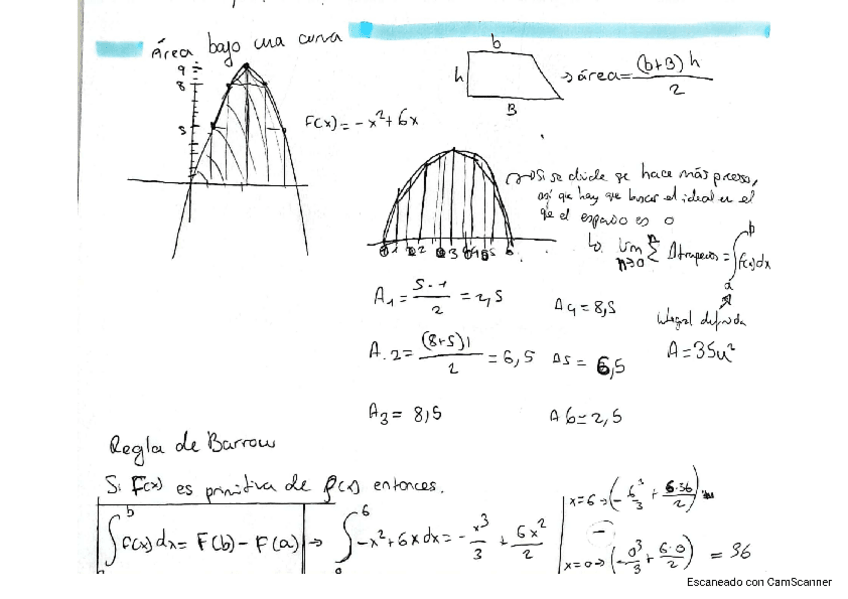 Área bajo una curva
b
h
B
→ área = (b+B) h / 2
9
8
5
F(x) = -x² + 6x
→ Si se divide se hace más preciso,
así que hay que buscar el ideal en el
que el espacio es 0
↳ lim n→0 Σ Atrapecios = ∫ f(x) dx
b
a
Integral definida
A = 35u²
A₁ = 5·1 / 2 = 2,5
A4 = 8,5
A.2 = (8+5)1 / 2 = 6,5
A5 = 6,5
A3 = 8,5
A6 = 2,5
Regla de Barrow
Si F(x) es primitiva de f(x) entonces.
∫ f(x) dx = F(b) - F(a) → ∫ -x² + 6x dx = -x³/3 + 6x²/2
x=6 → (-6³/3 + 6·36/2)
-
x=0 → (-0³/3 + 6·0/2) = 36
Escaneado con CamScanner